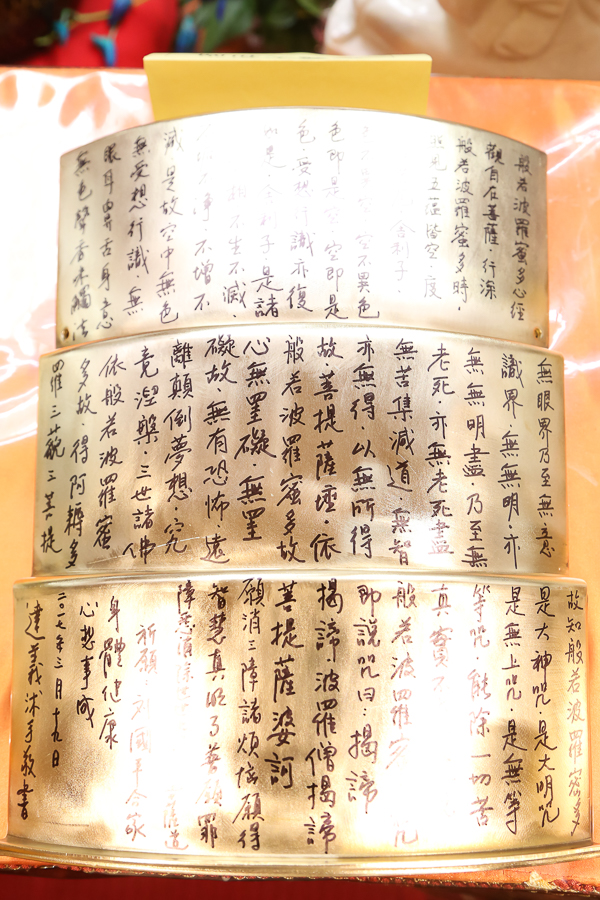 般若波羅蜜多心經
觀自在菩薩·行深
般若波羅蜜多時·
見五蘊皆空·度
舍利子·
空不異色
色即是空空即是
色受想行識亦復
如是·舍利子·是諸
不生不滅·
淨·不增不
減是故空中無色
無受想行識無
眼耳鼻舌身意
無色聲香味觸法
無眼界乃至無意
識界·無無明·亦
無無明盡·乃至無
老死·亦無老死盡
無苦集滅道·無智
亦無得·以無所得
故菩提薩埵·依
般若波羅蜜多故
心無罣礙·無罣
礙故·無有恐怖遠
離顛倒夢想·究
竟涅槃·三世諸佛
依般若波羅蜜
多故·得阿耨多
羅三藐三菩提
故知般若波羅蜜多
是大神咒·是大明咒
是無上咒·是無等
等咒·能除一切苦
真實不
般若波羅蜜 咒
即說咒曰·揭諦
揭諦波羅僧揭諦
菩提薩婆訶
願消三障諸煩惱願得
智慧真明了普願罪
障悉消除 菩薩道
祈願
身體健康
心想事成
二〇一七年三月十九日
達義沐手敬書